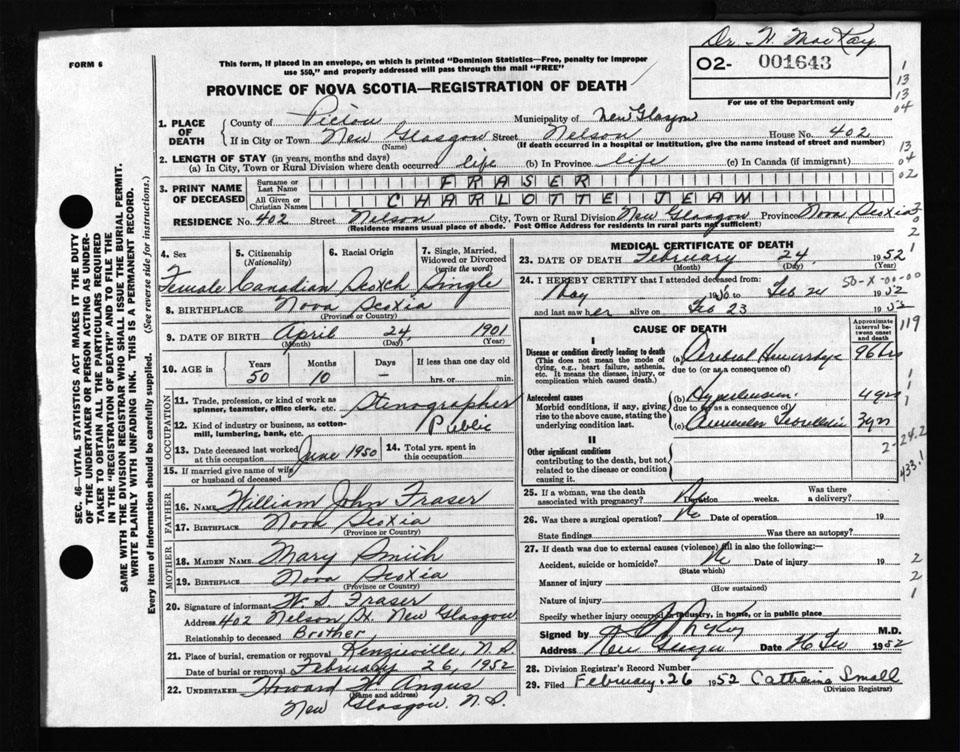 Dr. H. MacKay
FORM 6
This form, if placed in an envelope, on which is printed "Dominion Statistics—Free, penalty for improper
use $50," and properly addressed will pass through the mail "FREE"
O2- 001643
For use of the Department only
PROVINCE OF NOVA SCOTIA—REGISTRATION OF DEATH
1. PLACE OF DEATH
County of Pictou Municipality of New Glasgow
If in City or Town New Glasgow Street Nelson House No. 402
(Name) (If death occurred in a hospital or institution, give the name instead of street and number)
2. LENGTH OF STAY (in years, months and days)
(a) In City, Town or Rural Division where death occurred life (b) In Province life (c) In Canada (if immigrant)
3. PRINT NAME OF DECEASED
Surname or Last Name FRASER
All Given or Christian Names CHARLOTTE JEAN
RESIDENCE No. 402 Street Nelson City, Town or Rural Division New Glasgow Province Nova Scotia
(Residence means usual place of abode. Post Office Address for residents in rural parts not sufficient)
4. Sex Female
5. Citizenship (Nationality) Canadian
6. Racial Origin Scotch
7. Single, Married, Widowed or Divorced (write the word) Single
8. BIRTHPLACE Nova Scotia
(Province or Country)
9. DATE OF BIRTH April 24, 1901
(Month) (Day) (Year)
10. AGE in Years 50 Months 10 Days — If less than one day old
hrs. or min.
OCCUPATION
11. Trade, profession, or kind of work as spinner, teamster, office clerk. etc. Stenographer
12. Kind of industry or business, as cotton-mill, lumbering, bank, etc. Public
13. Date deceased last worked at this occupation June 1950 14. Total yrs. spent in this occupation
15. If married give name of wife or husband of deceased
FATHER
16. NAME William John Fraser
17. BIRTHPLACE Nova Scotia
(Province or Country)
MOTHER
18. MAIDEN NAME Mary Smith
19. BIRTHPLACE Nova Scotia
(Province or Country)
20. Signature of informant W. S. Fraser
Address 402 Nelson St. New Glasgow
Relationship to deceased Brother
21. Place of burial, cremation or removal Kenzieville, N.S.
Date of burial or removal February 26, 1952
22. UNDERTAKER Howard W. Angus
(Name and address)
New Glasgow, N.S.
MEDICAL CERTIFICATE OF DEATH
23. DATE OF DEATH February 24, 1952
(Month) (Day) (Year)
24. I HEREBY CERTIFY that I attended deceased from:
May 1950 to Feb 24 1952
and last saw her alive on Feb 23 1952
CAUSE OF DEATH
Approximate interval between onset and death
I
Disease or condition directly leading to death
(This does not mean the mode of dying, e.g., heart failure, asthenia, etc. It means the disease, injury, or complication which caused death.)
(a) Cerebral Hemorrhage 96 hrs
due to (or as a consequence of)
Antecedent causes
Morbid conditions, if any, giving rise to the above cause, stating the underlying condition last.
(b) Hypertension 4 yrs
due to (or as a consequence of)
(c) 3 yrs
II
Other significant conditions
contributing to the death, but not related to the disease or condition causing it.
25. If a woman, was the death associated with pregnancy? No Duration weeks. Was there a delivery?
26. Was there a surgical operation? No Date of operation 19
State findings Was there an autopsy?
27. If death was due to external causes (violence) fill in also the following:
Accident, suicide or homicide? No Date of injury 19
(State which)
Manner of injury
(How sustained)
Nature of injury
Specify whether injury occurred in industry, in home, or in public place
Signed by M.D.
Address New Glasgow Date 26 Feb 1952
28. Division Registrar's Record Number
29. Filed February 26 1952 Small
(Division Registrar)
SEC. 46—VITAL STATISTICS ACT MAKES IT THE DUTY
OF THE UNDERTAKER OR PERSON ACTING AS UNDER-
TAKER TO OBTAIN ALL THE PARTICULARS REQUIRED
IN THE "REGISTRATION OF DEATH" AND TO FILE THE
SAME WITH THE DIVISION REGISTRAR WHO SHALL ISSUE THE BURIAL PERMIT.
WRITE PLAINLY WITH UNFADING INK. THIS IS A PERMANENT RECORD.
Every item of information should be carefully supplied. (See reverse side for instructions.)